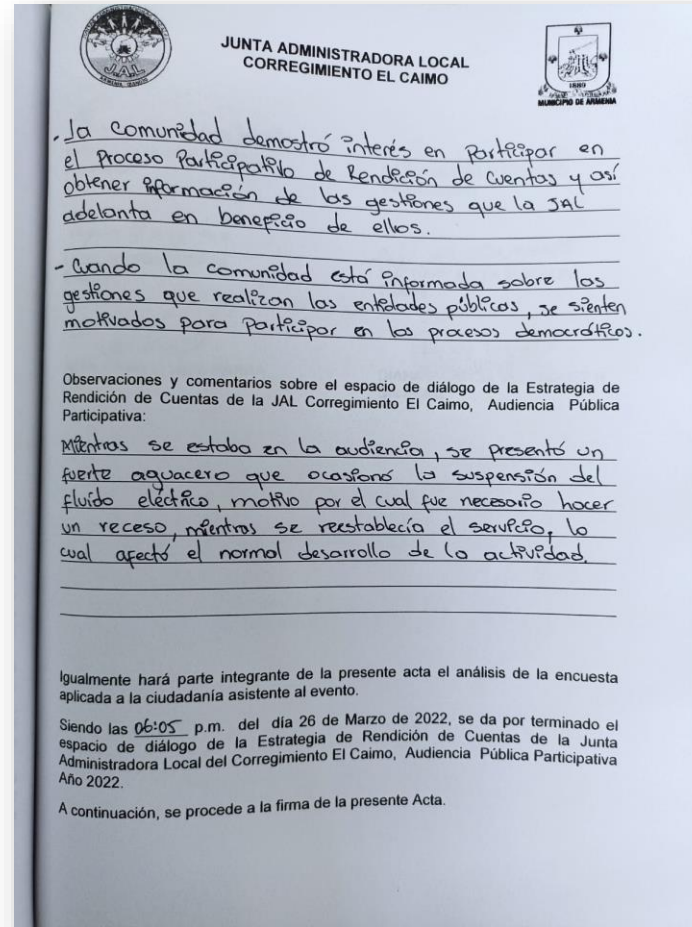 JUNTA ADMINISTRADORA LOCAL
CORREGIMIENTO EL CAIMO
J.A.L.
1889
MUNICIPIO DE ARMENIA
. La comunidad demostró interés en participar en
el Proceso Participativo de Rendición de Cuentas y así
obtener información de las gestiones que la JAL
adelanta en beneficio de ellos.
- Cuando la comunidad está informada sobre las
gestiones que realizan las entidades públicas, se sienten
motivados para participar en los procesos democráticos.
Observaciones y comentarios sobre el espacio de diálogo de la Estrategia de
Rendición de Cuentas de la JAL Corregimiento El Caimo, Audiencia Pública
Participativa:
Mientras se estaba en la audiencia, se presentó un
fuerte aguacero que ocasionó la suspensión del
fluído eléctrico, motivo por el cual fue necesario hacer
un receso, mientras se reestablecía el servicio, lo
cual afectó el normal desarrollo de la actividad.
Igualmente hará parte integrante de la presente acta el análisis de la encuesta
aplicada a la ciudadanía asistente al evento.
Siendo las 06:05 p.m. del día 26 de Marzo de 2022, se da por terminado el
espacio de diálogo de la Estrategia de Rendición de Cuentas de la Junta
Administradora Local del Corregimiento El Caimo, Audiencia Pública Participativa
Año 2022.
A continuación, se procede a la firma de la presente Acta.